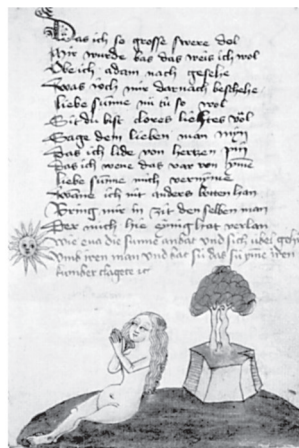 Das ich so grosse swere dol
Mir wurde bas das weis ich wol
Obe ich adam noch gesehe
Was ioch mir darnach beschehe
liebe sunne nu tů so wol
Sit du bist clores liehtes vol
Sage dem lieben man min
Das ich lide von hertzen pin
Das ich wene das var von yme
liebe sunne mich vernyme
Wane ich nit anders botten han
Bring mir in zit den selben man
Der mich hie einig hat verlan
Wie eua die sunne anbat vnd sich úbel
Vmb iren man vnd bat sú das sú yme iren
kumber clagete